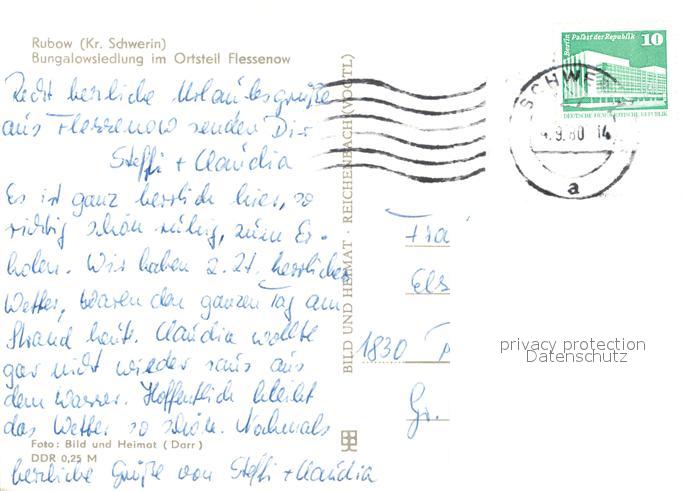 Rubow (Kr. Schwerin)
Bungalowsiedlung im Ortsteil Flessenow
Recht herzliche Urlaubsgrüße
aus Flessenow senden Dir
Steffi + Claudia
Es ist ganz herrlich hier, so
richtig schön ruhig, zum Er-
holen. Wir haben z. Zt. herrliches
Wetter, waren den ganzen Tag am
Strand heute. Claudia wollte
gar nicht wieder raus aus
dem Wasser. Hoffentlich bleibt
das Wetter so schön. Nochmals
herzliche Grüße von Steffi + Claudia
Foto: Bild und Heimat (Darr)
DDR 0,25 M
BILD UND HEIMAT · REICHENBACH (VOGTL)
Berlin Palast der Republik 10
DEUTSCHE DEMOKRATISCHE REPUBLIK
SCHWE
.9.80 14
a
Fra
Els
1830
Gr.
privacy protection
Datenschutz